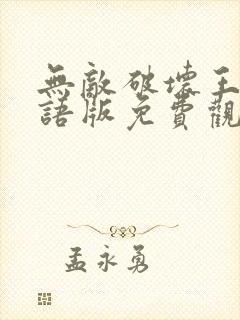 無敵破壞王
語版免費觀
孟永勇